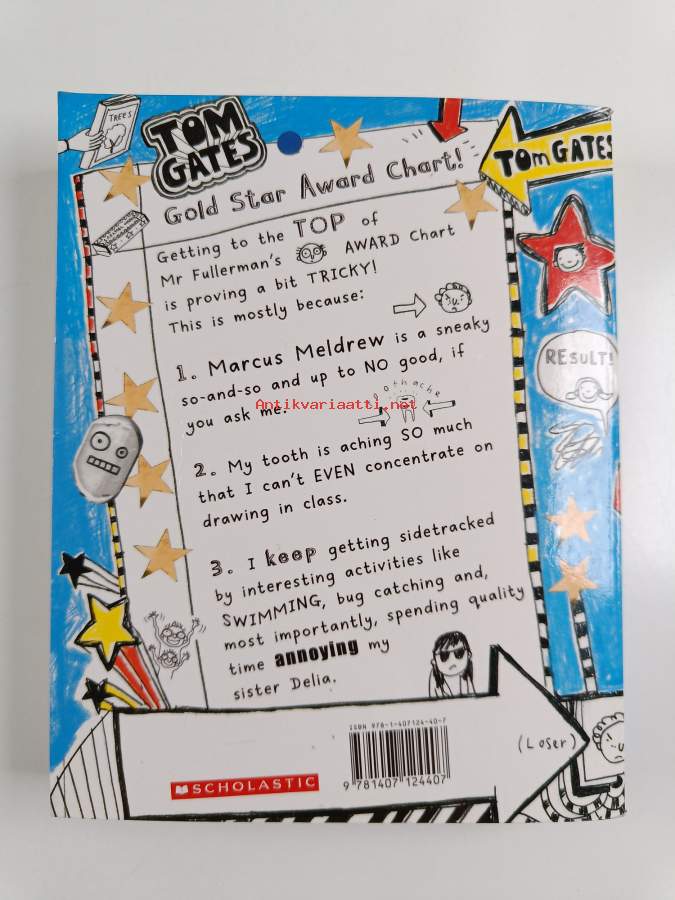 TREES
TOM
GATES
TOM GATES
Gold Star Award Chart!
Getting to the TOP of
Mr Fullerman's AWARD Chart
is proving a bit TRICKY!
This is mostly because:
RESULT!
1. Marcus Meldrew is a sneaky
so-and-so and up to NO good, if
you ask me.
Antikvariaatti.net
2. My tooth is aching SO much
that I can't EVEN concentrate on
drawing in class.
3. I keep getting sidetracked
by interesting activities like
SWIMMING, bug catching and,
most importantly, spending quality
time annoying my
sister Delia.
ISBN 978-1-407124-40-7
(Loser)
SCHOLASTIC
9 781407 124407